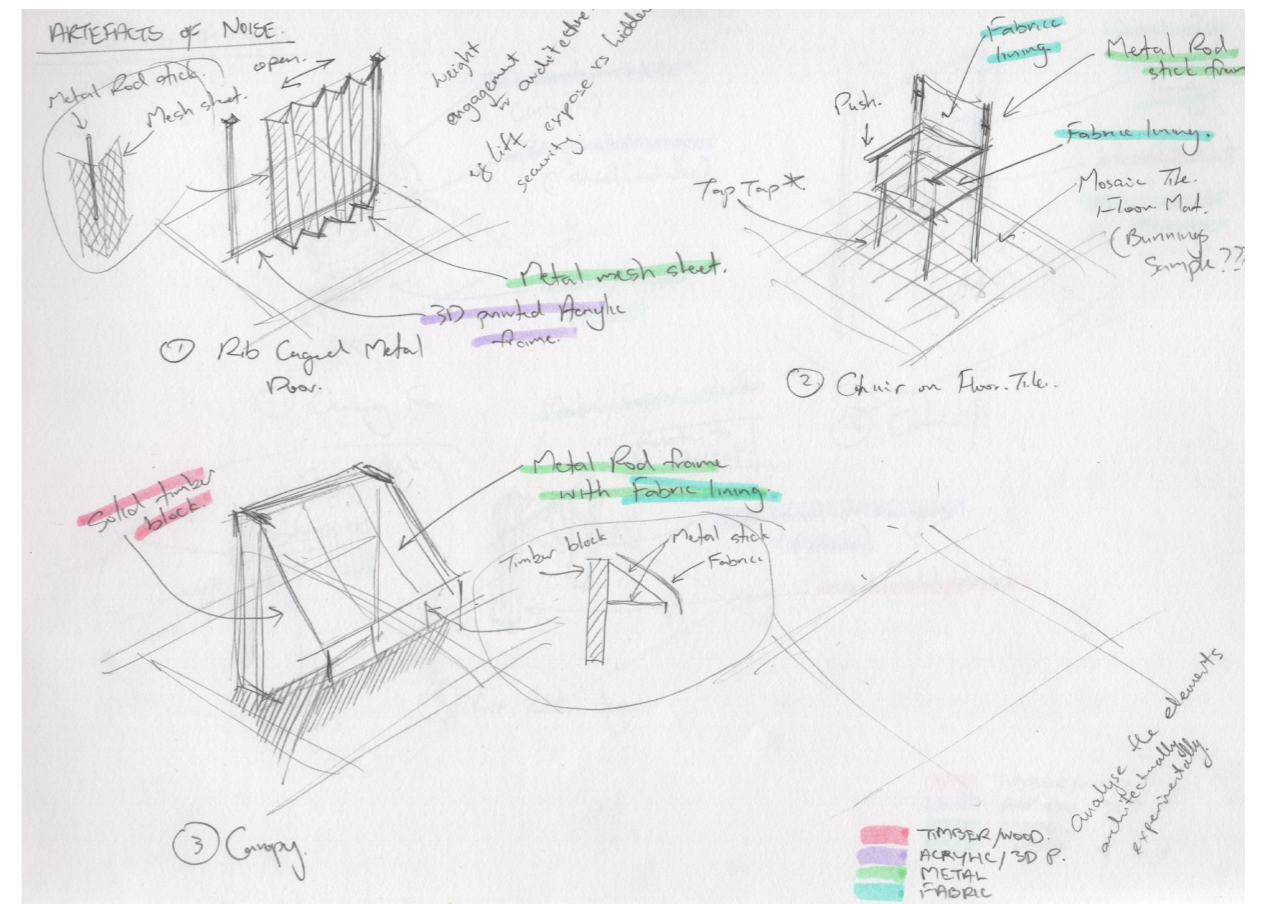 ARTEFACTS OF NOISE.
Metal Rod stick.
Mesh sheet.
open.
weight
engagement
to architective.
of lift expose vs hidden
security
Metal mesh sheet.
3D printed Acrylic
frame.
① Rib Caged Metal
Door.
Fabric
lining.
Metal Rod
stick fram
Push.
Fabric lining.
Tap Tap *
Mosaic Tile.
Floor Mat.
(Bunnings
Sample??
② Chair on Floor Tile.
Solid timber
block.
Metal Rod frame
with Fabric lining.
Timber block
Metal stick
Fabric
③ Canopy.
Analyse the elements
architecturally
experimentally
TIMBER/WOOD.
ACRYLIC/3D P.
METAL
FABRIC